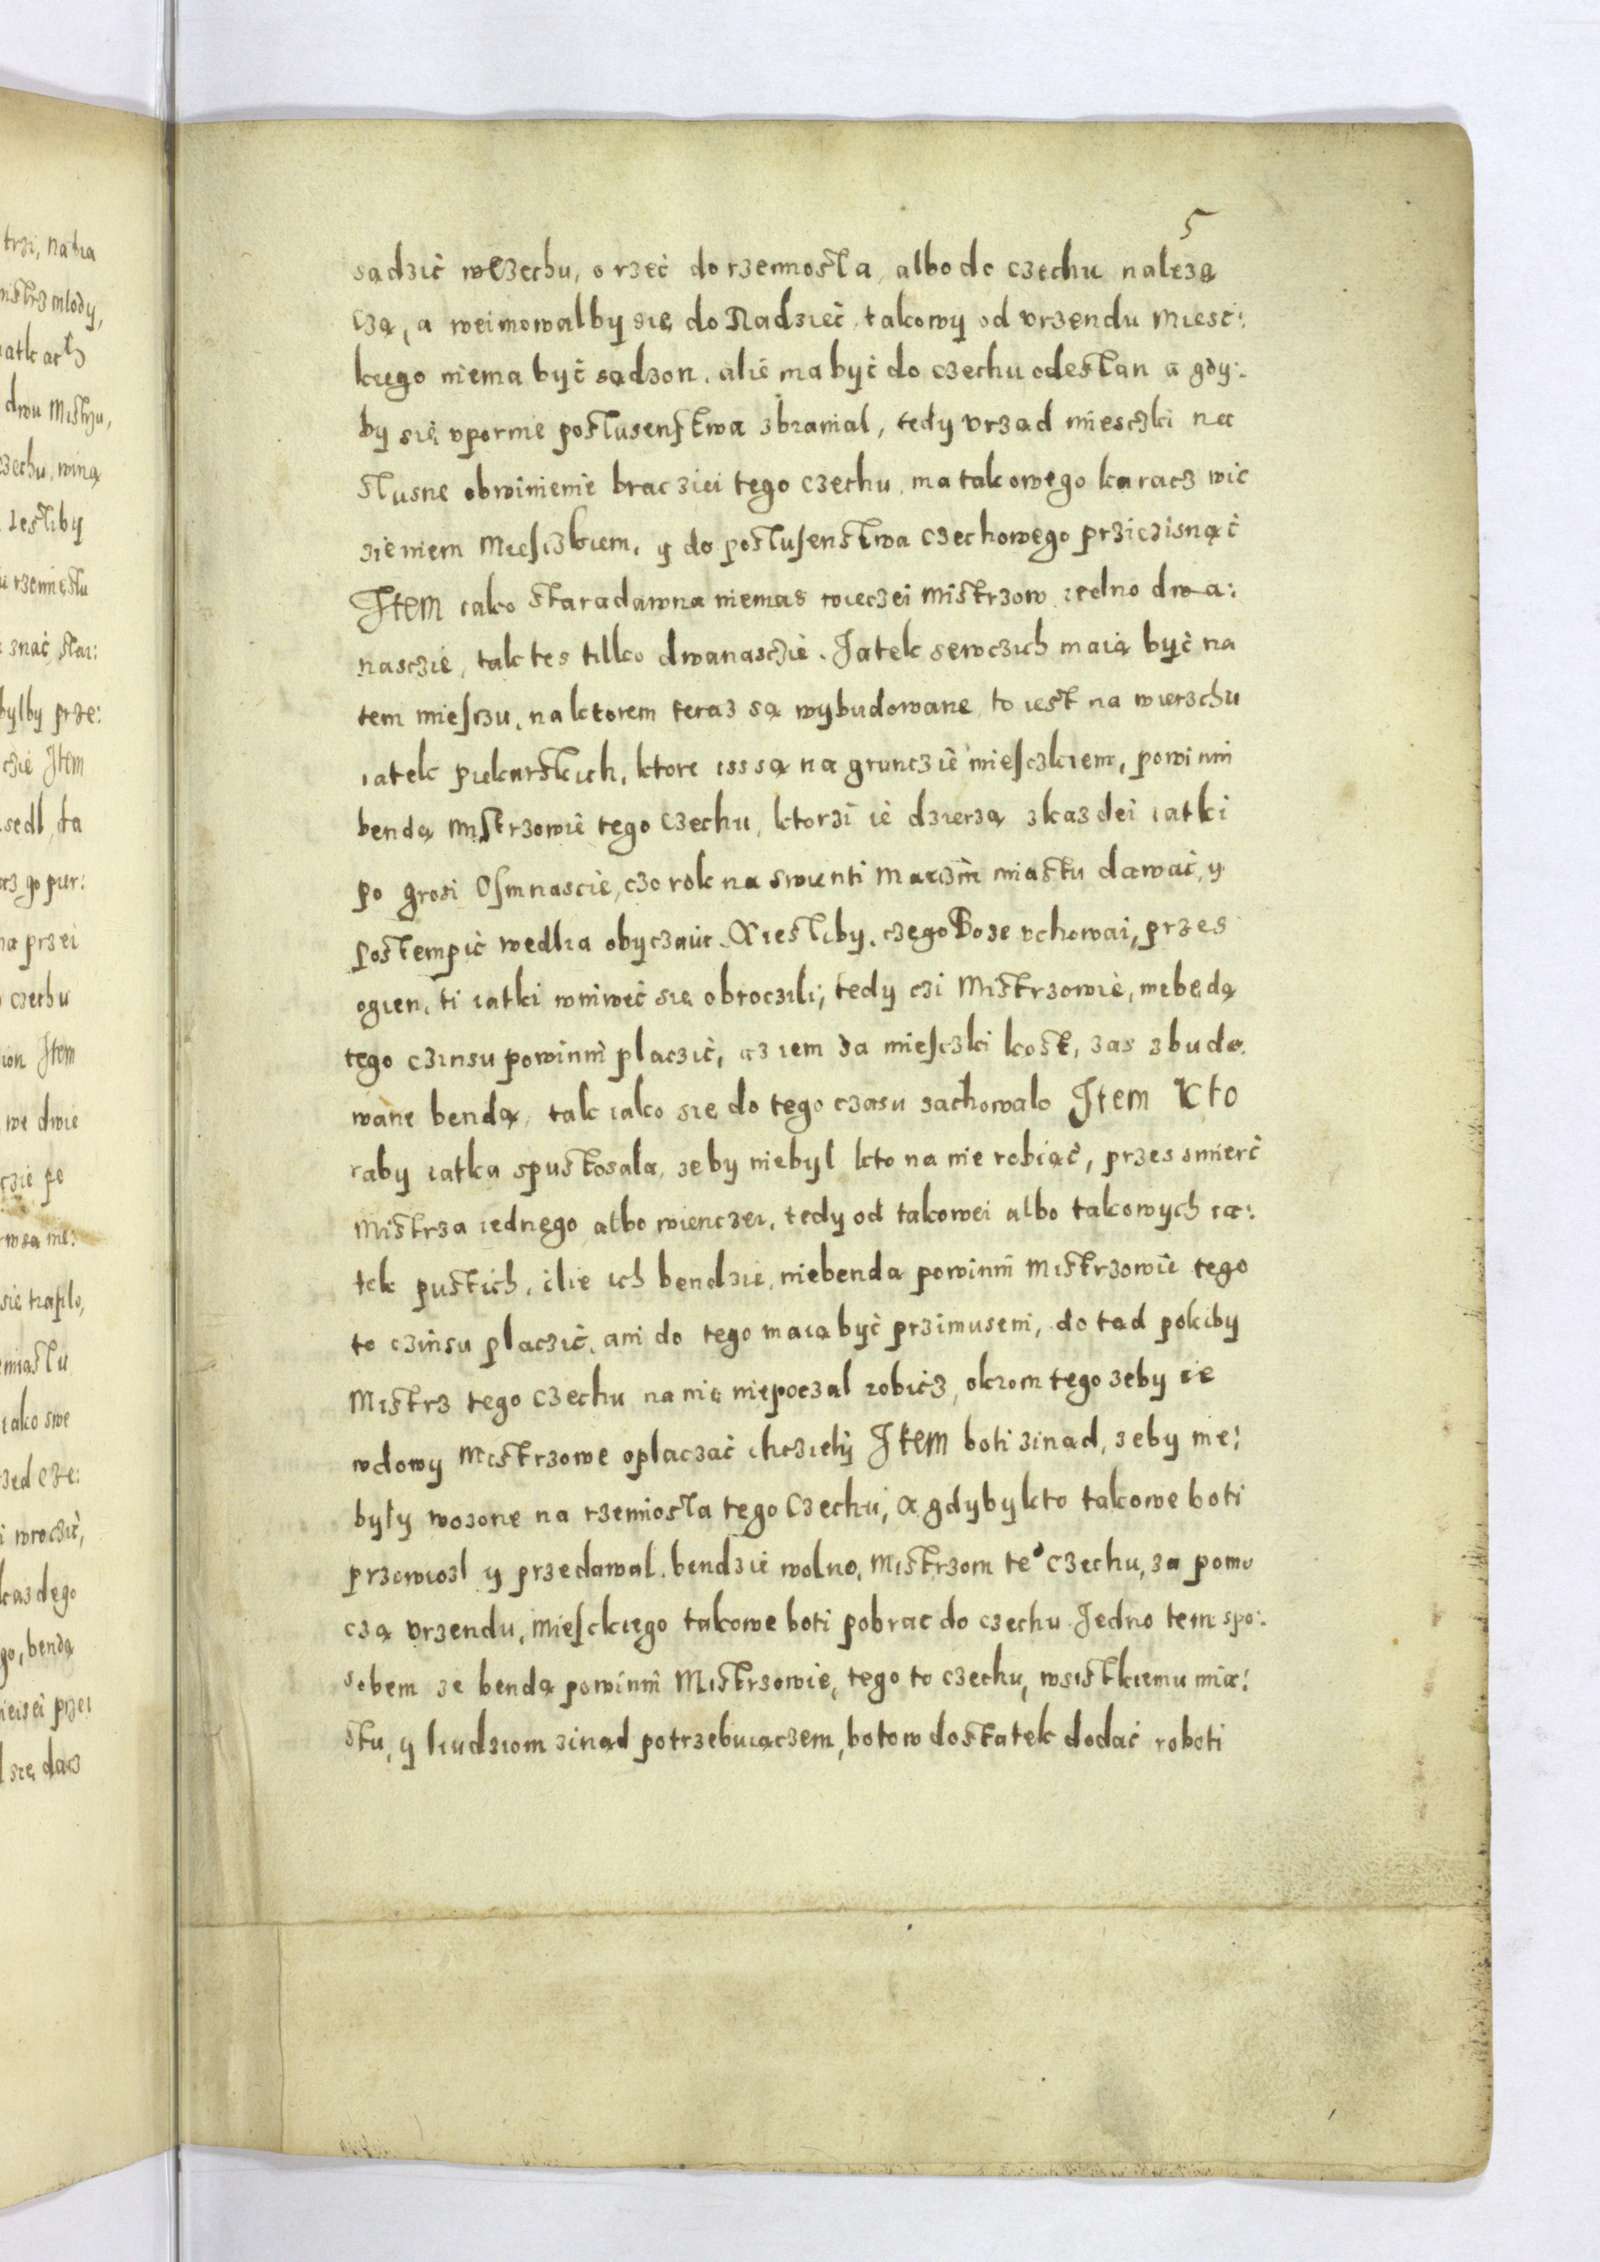 5
trzi, na dia
mistrz mlody,
iatkach
dwu Mistrzu,
czechu, winą
Iestliby
rzemięstu
znać, stai:
bylby prze:
czie Item
sedl, ta
go pier:
na przei
czechu
Item
we dwie
czie po
sie trafilo,
miastu
iako swe
wroczić,
kazdego
go, bendą
przei
sie, dacz
sądzić wCzechu, o rzeć do rzemiosla, albo do czechu należą
czą, a weimowalby się do Radzieć, takowy od vrzendu Miesc:
kiego niema być sądzon, alie ma być do czechu odestan a gdy:
by się vpornie postusenstwa zbranial, tedy vrząd miesczki na
stusne obwinienie bracziei tego czechu, ma takowego karacz wię
zieniem Miesczkiem, y do postusenstwa czechowego prziczisnąć
Item iako staradawna niemas wieczei Mistrzow iedno dwa:
nasczie, tak tes tilko dwanasczie. Jatek sewczich maią być na
tem miesczu, na ktorem teraz są wybudowane, to iest na wierzchu
iatek piekarskich, ktore iss są na grunczie miesczkiem, powinni
bendą Mistrzowie tego Czechu, ktorzi ie dzierzą zkazdei iatki
po grosi Osmnascie, czo rok na swienti Marczin miastu dawać, y
postempić wedlia obyczaiu. A iestliby, czego Boze vchowai, przes
ogien, ti iatki wniweć się obroczili, tedy czi Mistrzowie, niebędą
tego czinsu powinni placzić, az iem za miesczki kost, zas zbudo.
wane bendą, tak iako się do tego czasu zachowalo Item Kto
raby iatka spustosala, zeby niebyl kto na nie robiąć, przes smierć
Mistrza iednego albo wienczei, tedy od takowei albo takowych ia:
tek pustich, ilie ich bendzie, niebenda powinni Mistrzowie tego
to czinsu placzić, ani do tego maią być przimuseni, do tąd pokiby
Mistrz tego Czechu na nię niepoczal robićz, okrom tego zeby ie
wdowy Mistrzowe oplaczać chcziely Item boti zinąd, zeby nie:
były wozone na rzemiosla tego Czechu, A gdyby kto takowe boti
przewiozl y przedawal, bendzie wolno, Mistrzom te° Czechu, za pomo
czą vrzendu, Miesckiego takowe boti pobrac do czechu Jedno tem spo:
sobem ze bendą powinni Mistrsowie, tego to czechu, wsistkiemu mia:
stu, y liudziom zinąd potrzebuiączem, botow dostatek dodać roboti